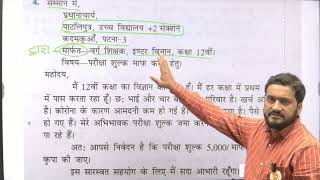 4. सम्मान में,
प्रधानाचार्य,
पाटलिपुत्र, उच्च विद्यालय +2 सेक्शन
कदमकुआँ, पटना-3
द्वारा मार्फत- वर्ग शिक्षक, इण्टर विज्ञान, कक्षा 12वीं
विषय—परीक्षा शुल्क माफ करने हेतु।
महोदय,
मैं 12वीं कक्षा का
मैं हर कक्षा में प्रथम
में पास करता रहा हूँ। छः भाई और चार बहनें
हैं। कोरोना के कारण आमदनी कम हो गई है।
है। पैसे
हो गए हैं। मेरे अभिभावक परीक्षा शुल्क जमा करने
पा रहे हैं।
अतः आपसे निवेदन है कि परीक्षा शुल्क 5,000/ माफ
कृपा की जाए।
इस सारस्वत सहयोग के लिए मैं सदा आभारी रहूँगा।